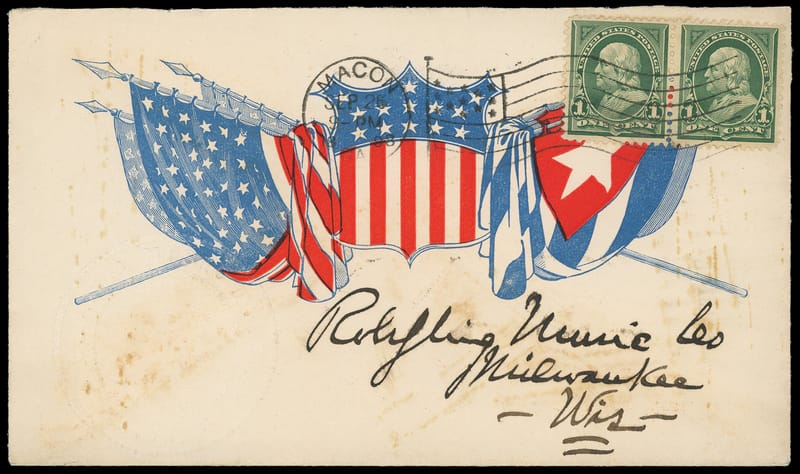 MACON
SEP 26
PM
UNITED STATES POSTAGE
1 1
ONE CENT
UNITED STATES POSTAGE
1 1
ONE CENT
Rohlfing Music Co
Milwaukee
- Wis -